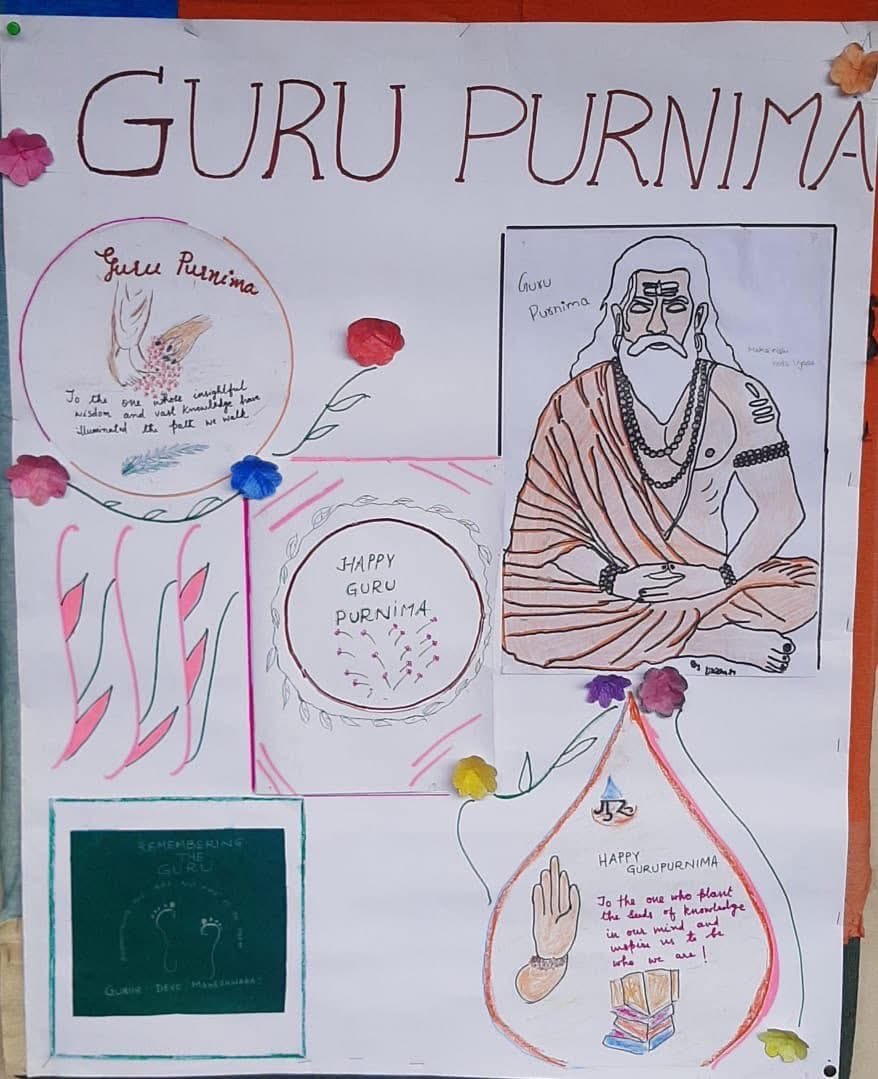 GURU PURNIMA
Guru Purnima
To the one whose insightful
wisdom and vast knowledge have
illuminated the path we walk
Guru
Purnima
Maharishi
Veda Vyasa
By
HAPPY
GURU
PURNIMA
REMEMBERING
THE
GURU
GURUR DEVO MAHESHWARA
HAPPY
GURUPURNIMA
To the one who plant
the seeds of knowledge
in our mind and
inspire us to be
who we are!